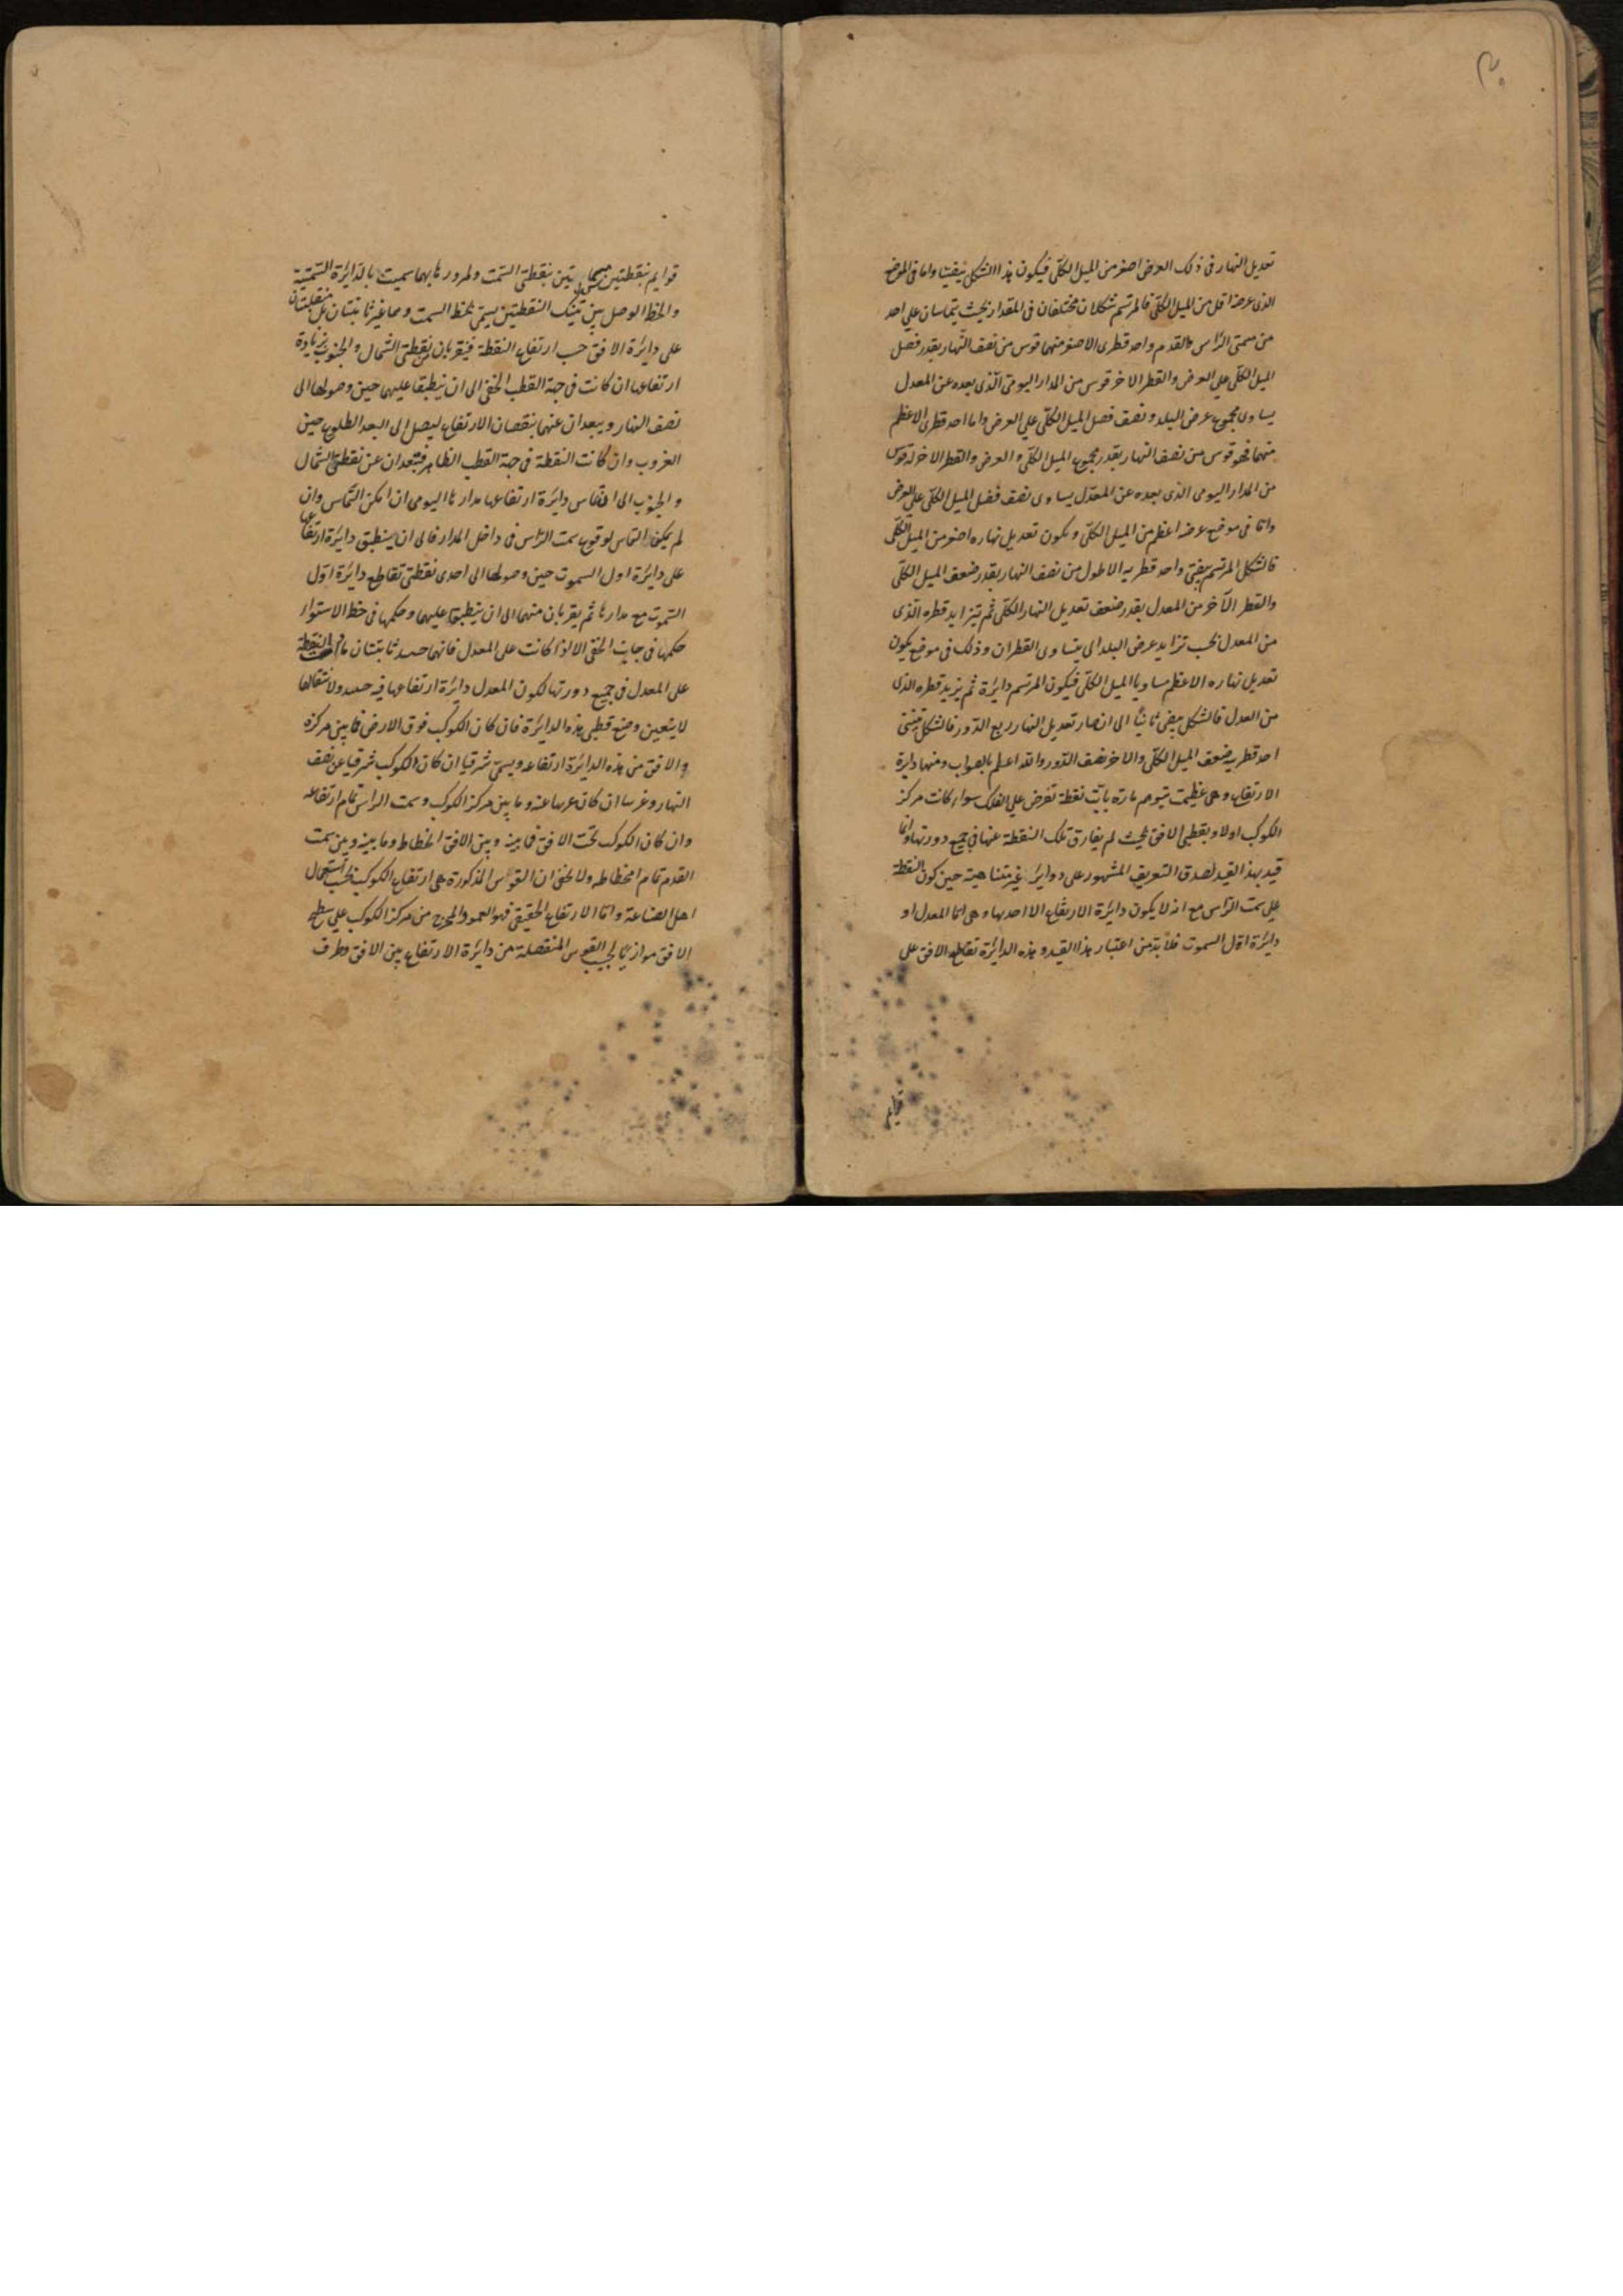 ٢٠
تعديل النهار فى ذلك العرض اصغر من الميل الكلّى فيكون هذا الشكل بيضيّا واما فى الموضع
الذى عرضه اقل من الميل الكلّى فالمرتسم شكلان مختلفان فى المقدار بحيث يتماسان على احد
من سمتى الرّاس والقدم واحد قطرى الاصغر منهما قوس من نصف النّهار بقدر فصل
الميل الكلّى على العرض والقطر الاخر قوس من المدار اليومىّ الّذى بعده عن المعدل
يساوى مجموع عرض البلد ونصف فصل الميل الكلّى على العرض واما احد قطرى الاعظم
منهما فهو قوس من نصف النهار بقدر مجموع الميل الكلّى والعرض والقطر الاخر له قوس
من المدار اليومى الذى بعده عن المعدّل يساوى نصف فضل الميل الكلّى على العرض
واما فى موضع عرضه اعظم من الميل الكلّى ويكون تعديل نهاره اصغر من الميل الكلّى
فالشكل المرتسم بيضىّ واحد قطريه الاطول من نصف النهار بقدر ضعف الميل الكلّى
والقطر الآخر من المعدل بقدر ضعف تعديل النهار الكلّى ثم يتزايد قطره الّذى
من المعدل بحسب تزايد عرض البلد الى يتساوى القطران وذلك فى موضع يكون
تعديل نهاره الاعظم مساويا الميل الكلّى فيكون المرتسم دايرة ثم يزيد قطره الذى
من المعدل فالشكل بيضى ثانيًا الى ان صار تعديل النهار ربع الدّور فالشكل بيضى
احد قطريه ضعف الميل الكلّى والاخر نصف الدّور والله اعلم بالصواب ومنها دايرة
الارتفاع وهى عظيمة تتوهم مارّة بايّة نقطة تفرض على الفلك سواء كانت مركز
الكوكب اولا وبقطبى الافق بحيث لم يفارق تلك النقطة عنها فى جميع دورتها وانما
قيد بهذا القيد لصدق التعريف المشهور على دواير غير متناهية حين كون النقطة
على سمت الرّاس مع انه لا يكون دايرة الارتفاع الا احديها وهى امّا المعدل او
دائرة اوّل السموت فلا بدّ من اعتبار هذا القيد وهذه الدايرة تقاطع الافق على
قوايم
قوايم بنقطتين مسماتين بنقطتى السّمت ولمرورها بهما سميت بالدّايرة السّمتية
والخط الوصل بين تينك النقطتين يسمّى بخط السمت وهما غير ثابتتان بل منتقلتان
على دايرة الافق حسب ارتفاع النقطة فيتقربان من نقطتى الشمال والجنوب بزيادة
ارتفاعها ان كانت فى جهة القطب الخفى الى ان ينطبقا عليهما حين وصولها الى
نصف النهار ويبعدان عنهما بنقصان الارتفاع ليصل الى البعد الطلوع حين
الغروب وان كانت النقطة فى جهة القطب الظاهر فتبعدان عن نقطتى الشمال
والجنوب الى ان تماس دايرة ارتفاعها مدارها اليومى ان امكن التّماس وان
لم يمكن التماس لوقوع سمت الرّاس فى داخل المدار فالى ان ينطبق دايرة ارتفاعها
على دايرة اول السموت حين وصولها الى احدى نقطتى تقاطع دايرة اوّل
السّموت مع مدارها ثم يقربان منهما الى ان ينطبق عليهما وحكمها فى خط الاستواء
حكمها فى جانب الخفى الا اذا كانت على المعدل فانهما ثابتتان
على المعدل فى جميع دورتها لكون المعدل دايرة ارتفاعها فيه ولانتقالها
لا يتعين وضع قطبى هذه الدائرة فان كان الكوكب فوق الارض فما بين مركزه
والافق من هذه الدايرة ارتفاعه ويسمّى شرقيا ان كان الكوكب شرقيا عن نصف
النهار وغربيا ان كان غربيا عنه وما بين مركز الكوكب وسمت الراس تمام ارتفاعه
وان كان الكوكب تحت الافق فما بينه وبين الافق انحطاط وما بينه وبين سمت
القدم تمام انحطاطه ولا يخفى ان القوس المذكورة هى ارتفاع الكوكب بحسب استعمال
اهل الصناعة وامّا الارتفاع الحقيقى فهو العمود المخرج من مركز الكوكب على سطح
الافق موازيًا لجيب القوس المنفصلة من دايرة الارتفاع بين الافق وطرف